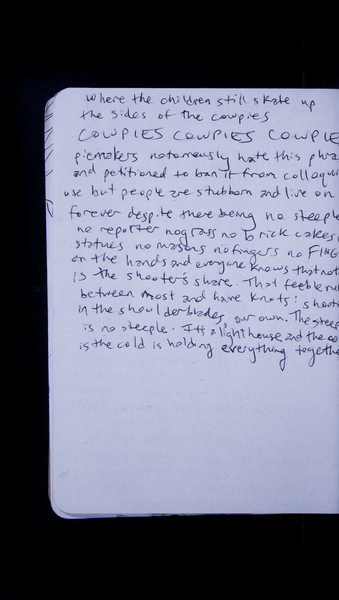 where the children still skate up
the sides of the cowpies
COWPIES COWPIES COWPIE
piemakers notoriously hate this phra
and petitioned to ban it from colloqui
use but people are stubborn and live on
forever despite there being no steeple
no reporter no grass no brick cakes
statues no masons no fingers no FING
on the hands and everyone knows that not
is the shooter's share. That feeble ru
between most and have knots: shoot
in the shoulderblades, our own. The steep
is no steeple. It's a lighthouse, and the co
is the cold is holding everything togethe